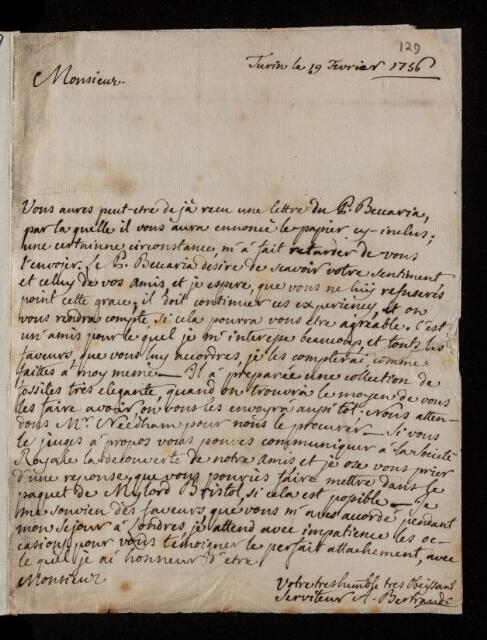 129
Turin le 19 Fevrier 1756
Monsieur
Vous aures peut-etre de jà recu une lettre du P. Beccaria,
par la quelle il vous aura ennoncé le papier cy-inclus;
une certainne circonstance, m'a fait retarder de vous
l'envojer. Le P. Beccaria desire de scavoir votre sentiment
et celuy de vos amis, et je espere, que vous ne luy refuserés
point cette grace; il doit continuer ces experiences, et on
vous rendra compte, si cela pourra vous etre agréable. C'est
un amis pour le quel je m'interesse beaucoup, et touts les
faveurs, que vous luy accordres, je les compterai comme
faites à moy meme — Il à preparée une collection de
fossiles très elegante, quand on trouvrà le moyen de vous
les faire avoir, on vous les envoyra aussi tôt: Nous atten-
dons Mr. Needham pour nous le procurer — Si vous
le jugés à propos vous pouves communiquer à la Societé
Royale la decouverte de notre amis et je ose vous prier
d'une reponse, que vous pouriés faire mettre dans le
paquet de Mylord Bristol, si cela est posible — Je
me souvien des faveurs que vous m'aves accordé pendant
mon sejour à Londres, je attend avec impatience les oc-
casions pour vous temoigner le perfait attachement, avec
le quel je ai honneur d'etre
Monsieur
Votre tres humble tres Obeissant
Serviteur A. Bertrandi